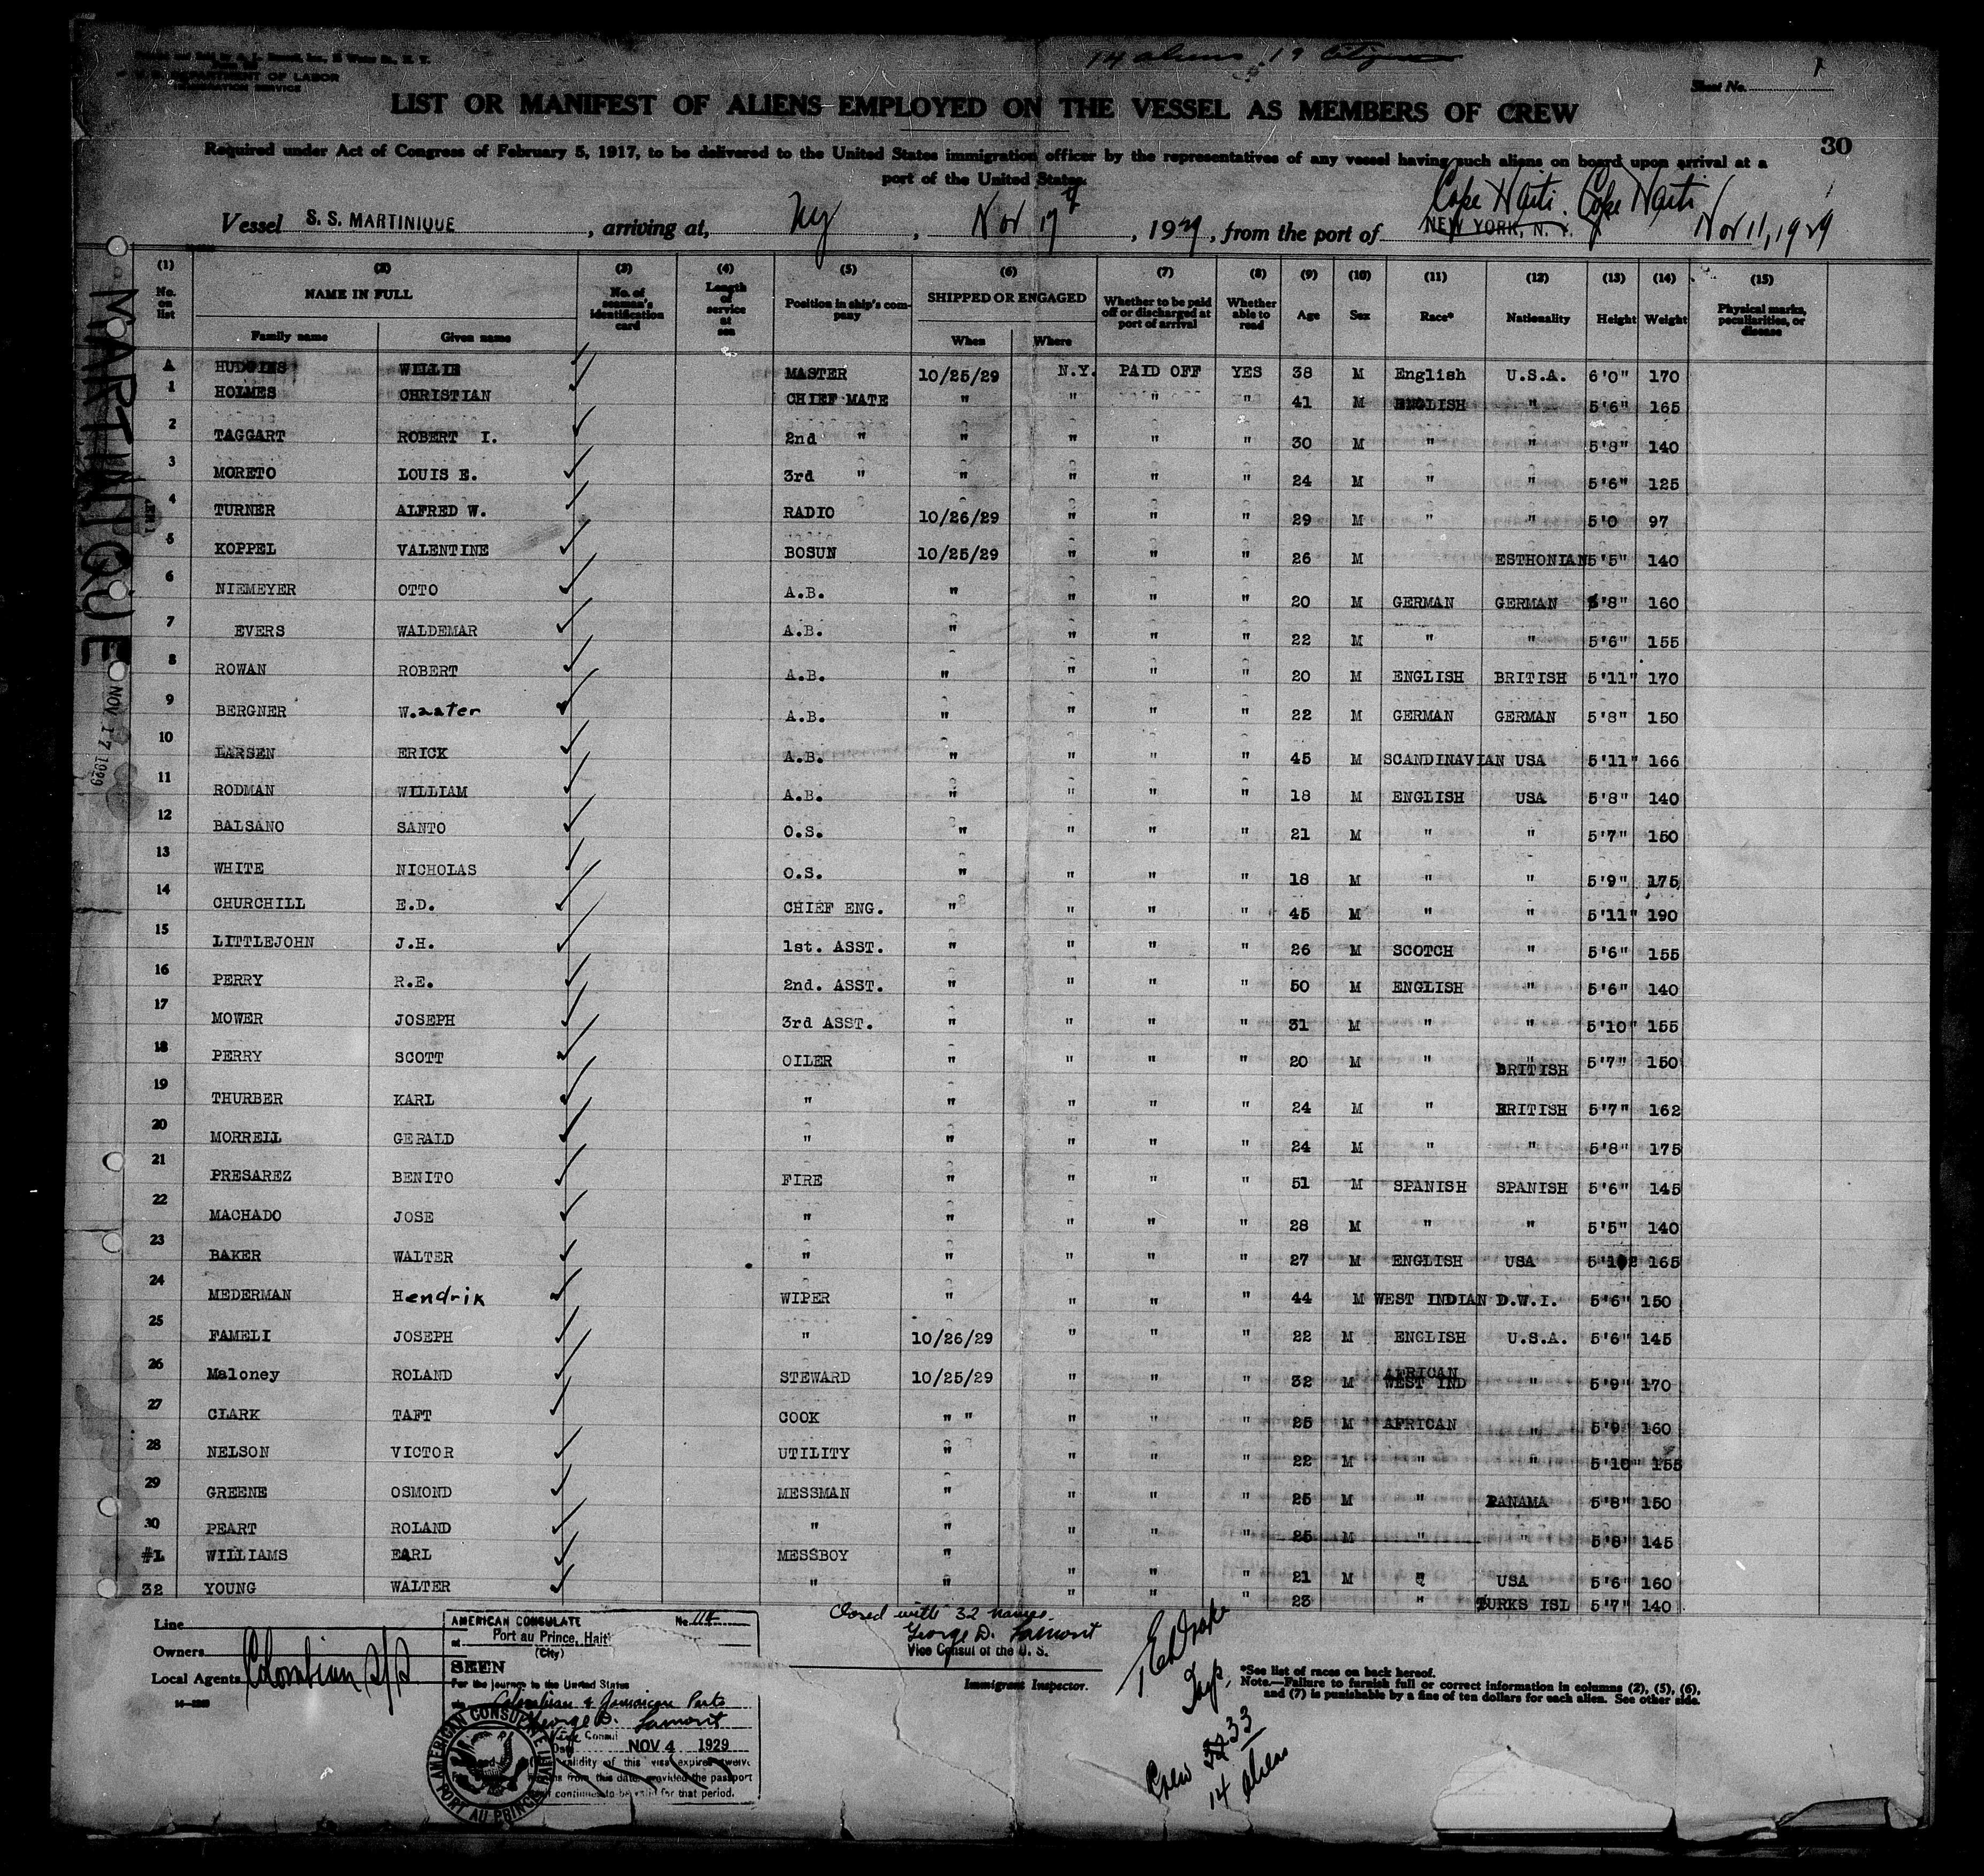 14 aliens 19 Citizens
U. S. DEPARTMENT OF LABOR
IMMIGRATION SERVICE
Sheet No. 1
LIST OR MANIFEST OF ALIENS EMPLOYED ON THE VESSEL AS MEMBERS OF CREW
30
Required under Act of Congress of February 5, 1917, to be delivered to the United States immigration officer by the representatives of any vessel having such aliens on board upon arrival at a
port of the United States.
Vessel S. S. MARTINIQUE, arriving at, Ny, Nov 17th, 1929, from the port of NEW YORK, N. Y. Cape Haiti. Cape Haiti Nov 11, 1929
(1) (2) (3) (4) (5) (6) (7) (8) (9) (10) (11) (12) (13) (14) (15)
No. on list NAME IN FULL No. of seaman's identification card Length of service at sea Position in ship's company SHIPPED OR ENGAGED Whether to be paid off or discharged at port of arrival Whether able to read Age Sex Race* Nationality Height Weight Physical marks, peculiarities, or disease
Family name Given name When Where
A HUDGINS WILLIE MASTER 10/25/29 N.Y. PAID OFF YES 38 M English U.S.A. 6'0" 170
1 HOLMES CHRISTIAN CHIEF MATE " " " " 41 M ENGLISH " 5'6" 165
2 TAGGART ROBERT I. 2nd " " " " " 30 M " " 5'8" 140
3 MORETO LOUIS E. 3rd " " " " " 24 M " " 5'6" 125
4 TURNER ALFRED W. RADIO 10/26/29 " " " 29 M " " 5'0 97
5 KOPPEL VALENTINE BOSUN 10/25/29 " " " 26 M ESTHONIAN 5'5" 140
6 NIEMEYER OTTO A.B. " " " " 20 M GERMAN GERMAN 5'8" 160
7 EVERS WALDEMAR A.B. " " " " 22 M " " 5'6" 155
8 ROWAN ROBERT A.B. " " " " 20 M ENGLISH BRITISH 5'11" 170
9 BERGNER A.B. " " " " 22 M GERMAN GERMAN 5'8" 150
10 LARSEN ERICK A.B. " " " " 45 M SCANDINAVIAN USA 5'11" 166
11 RODMAN WILLIAM A.B. " " " " 18 M ENGLISH USA 5'8" 140
12 BALSANO SANTO O.S. " " " " 21 M " " 5'7" 150
13 WHITE NICHOLAS O.S. " " " " 18 M " " 5'9" 175
14 CHURCHILL E.D. CHIEF ENG. " " " " 45 M " " 5'11" 190
15 LITTLEJOHN J.H. 1st. ASST. " " " " 26 M SCOTCH " 5'6" 155
16 PERRY R.E. 2nd. ASST. " " " " 50 M ENGLISH " 5'6" 140
17 MOWER JOSEPH 3rd ASST. " " " " 31 M " " 5'10" 155
18 PERRY SCOTT OILER " " " " 20 M " " BRITISH 5'7" 150
19 THURBER KARL " " " " " 24 M " BRITISH 5'7" 162
20 MORRELL GERALD " " " " " 24 M " " 5'8" 175
21 PRESAREZ BENITO FIRE " " " " 51 M SPANISH SPANISH 5'6" 145
22 MACHADO JOSE " " " " " 28 M " " 5'5" 140
23 BAKER WALTER " " " " " 27 M ENGLISH USA 165
24 MEDERMAN Hendrik WIPER " " " " 44 M WEST INDIAN D.W.I. 5'6" 150
25 FAMELI JOSEPH " 10/26/29 " " " 22 M ENGLISH U.S.A. 5'6" 145
26 Maloney ROLAND STEWARD 10/25/29 " " " 32 M AFRICAN WEST IND " 5'9" 170
27 CLARK TAFT COOK " " " " " 25 M AFRICAN " 5'9 160
28 NELSON VICTOR UTILITY " " " " 22 M " " 5'10" 155
29 GREENE OSMOND MESSMAN " " " " 25 M " PANAMA 5'8" 150
30 PEART ROLAND " " " " " 25 M " " 5'8" 145
WILLIAMS EARL MESSBOY " " " " 21 M " USA 5'6" 160
32 YOUNG WALTER " " " " " 23 " TURKS ISL 5'7" 140
MARTINIQUE
NOV 17 1929
Line
Owners
Local Agents Colombian S/S
AMERICAN CONSULATE No. 114
at Port au Prince, Haiti
(City)
SEEN
For the journey to the United States
via Colombian & Jamaican Ports
George D. Lamont
Vice Consul
Date NOV 4 1929
validity of this visa expires twelve
months from this date, provided the passport
continues to be valid for that period.
AMERICAN CONSULATE PORT AU PRINCE HAITI
Closed with 32 names.
George D. Lamont
Vice Consul of the U. S.
Immigrant Inspector.
Insp.
Crew 33
14 aliens
*See list of races on back hereof.
Note.—Failure to furnish full or correct information in columns (2), (5), (6),
and (7) is punishable by a fine of ten dollars for each alien. See other side.